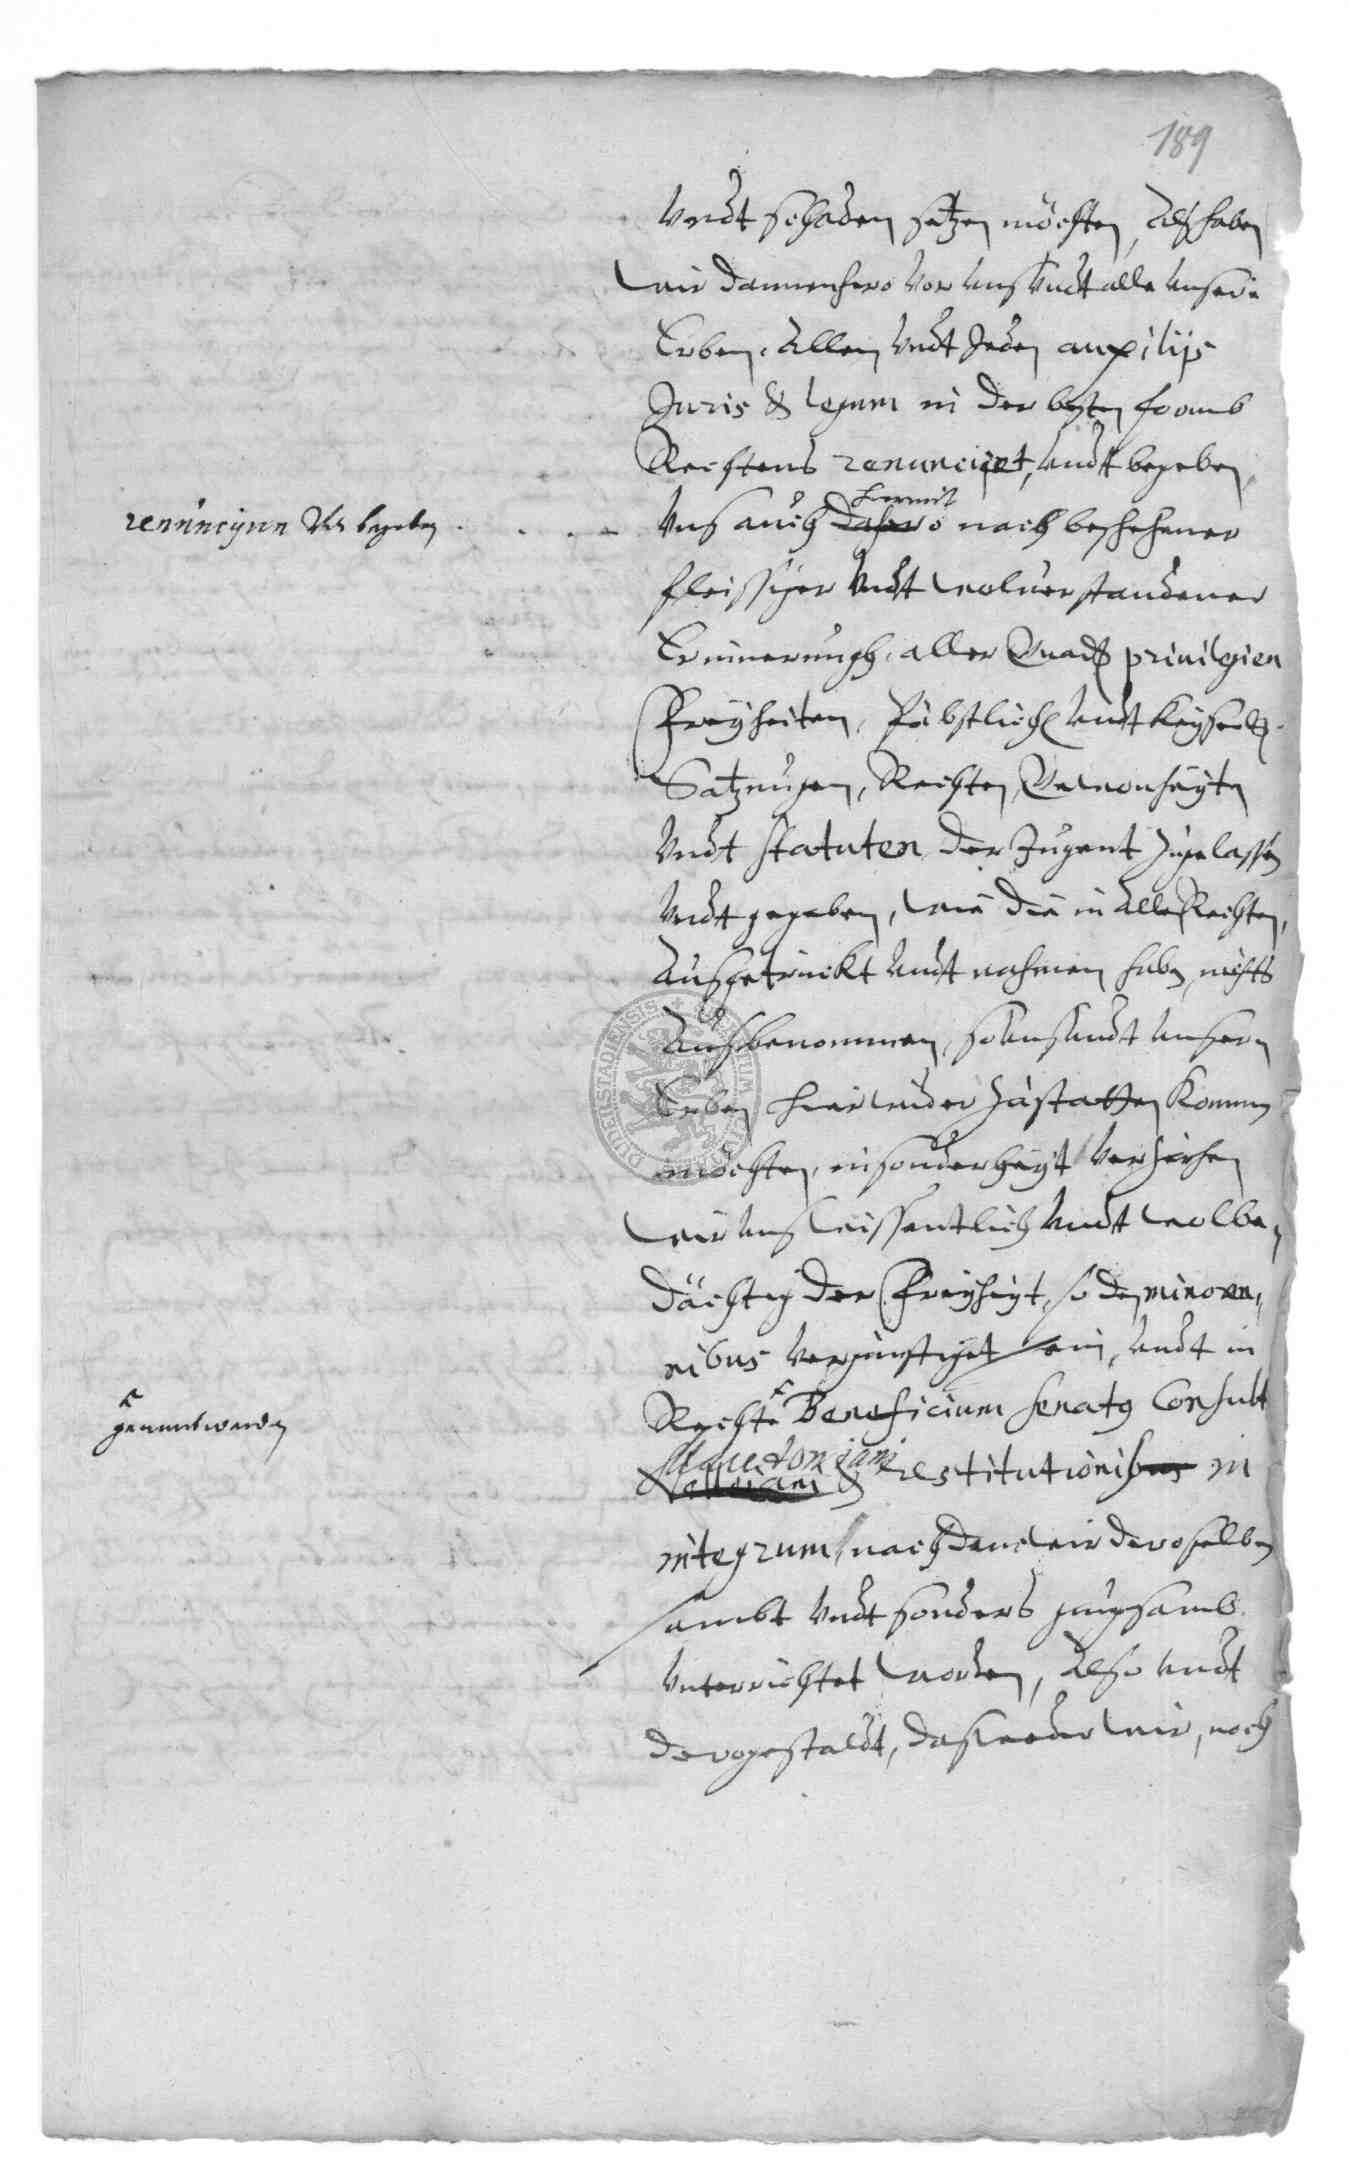 189
Vndt schaden setzen möchten, Alß haben
wir dannenhero vor unß Vndt alle unsere
Erben, Allen Vndt Jeden auxilijs
Juris & legum in der besten formb
Rechtens renuncijret, undt begeben,
renuncijren Vndt begeben
hiermit
Vnß auch dahero nach beschehener
fleissiger Vndt wolverstandener
Erinnerungh, aller Gnadt privilegien
Freyheiten, Päbstlich Vndt Keyserl.
Satzungen, Rechten, Gewonheyten
Vndt statuten der Jugent zugelassen
Vndt gegeben, wie die in Alle Rechten,
Ausgetruckt Vndt nahmen haben, nichts
Außbenommen, so unß Vndt unsern
Erben hierwider zu statten kommen
möchten, insonderheyt verzeihen
wir unß wissentlich Vndt wolbe-
dächtig der Freyheyt, so den minoren-
nibus vergünstiget sein, undt in
Rechten Beneficium senatus Consult
genendt werden
Macedonjani
Velleiani & restitutionibus in
integrum, nachdeme wir deroselben
sambt Vndt sonders gnugsamb
Vnterrichtet worden, Also undt
dergestaldt, daß weder wir, noch
DUDERSTADIENSIS